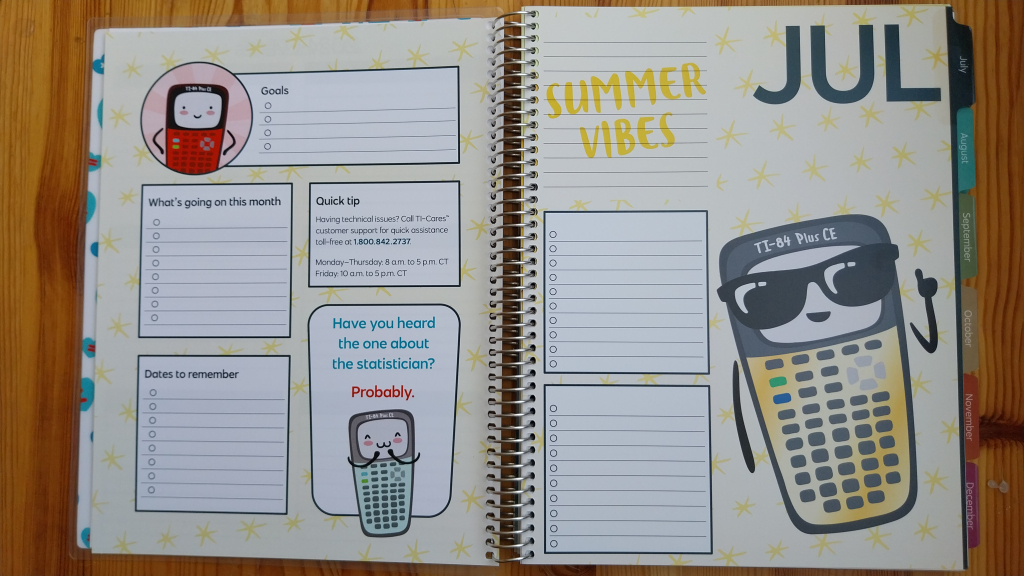 TI-84 Plus CE
Goals
What's going on this month
Quick tip
Having technical issues? Call TI-Cares™
customer support for quick assistance
toll-free at 1.800.842.2737.
Monday–Thursday: 8 a.m. to 5 p.m. CT
Friday: 10 a.m. to 5 p.m. CT
Dates to remember
Have you heard
the one about
the statistician?
Probably.
TI-84 Plus CE
SUMMER
VIBES
JUL
TI-84 Plus CE
July
August
September
October
November
December